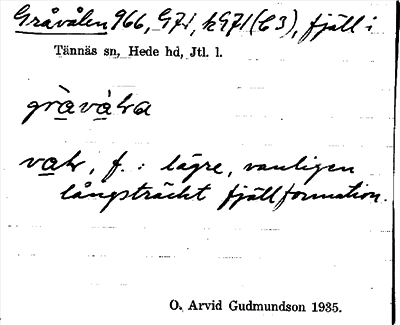 Gråvålen 966, G71, kG71 (C3), fjäll i
Tännäs sn, Hede hd, Jtl. l.
gràvàłna
vał, f.: lägre, vanligen
långsträckt fjällformation.
O. Arvid Gudmundson 1935.